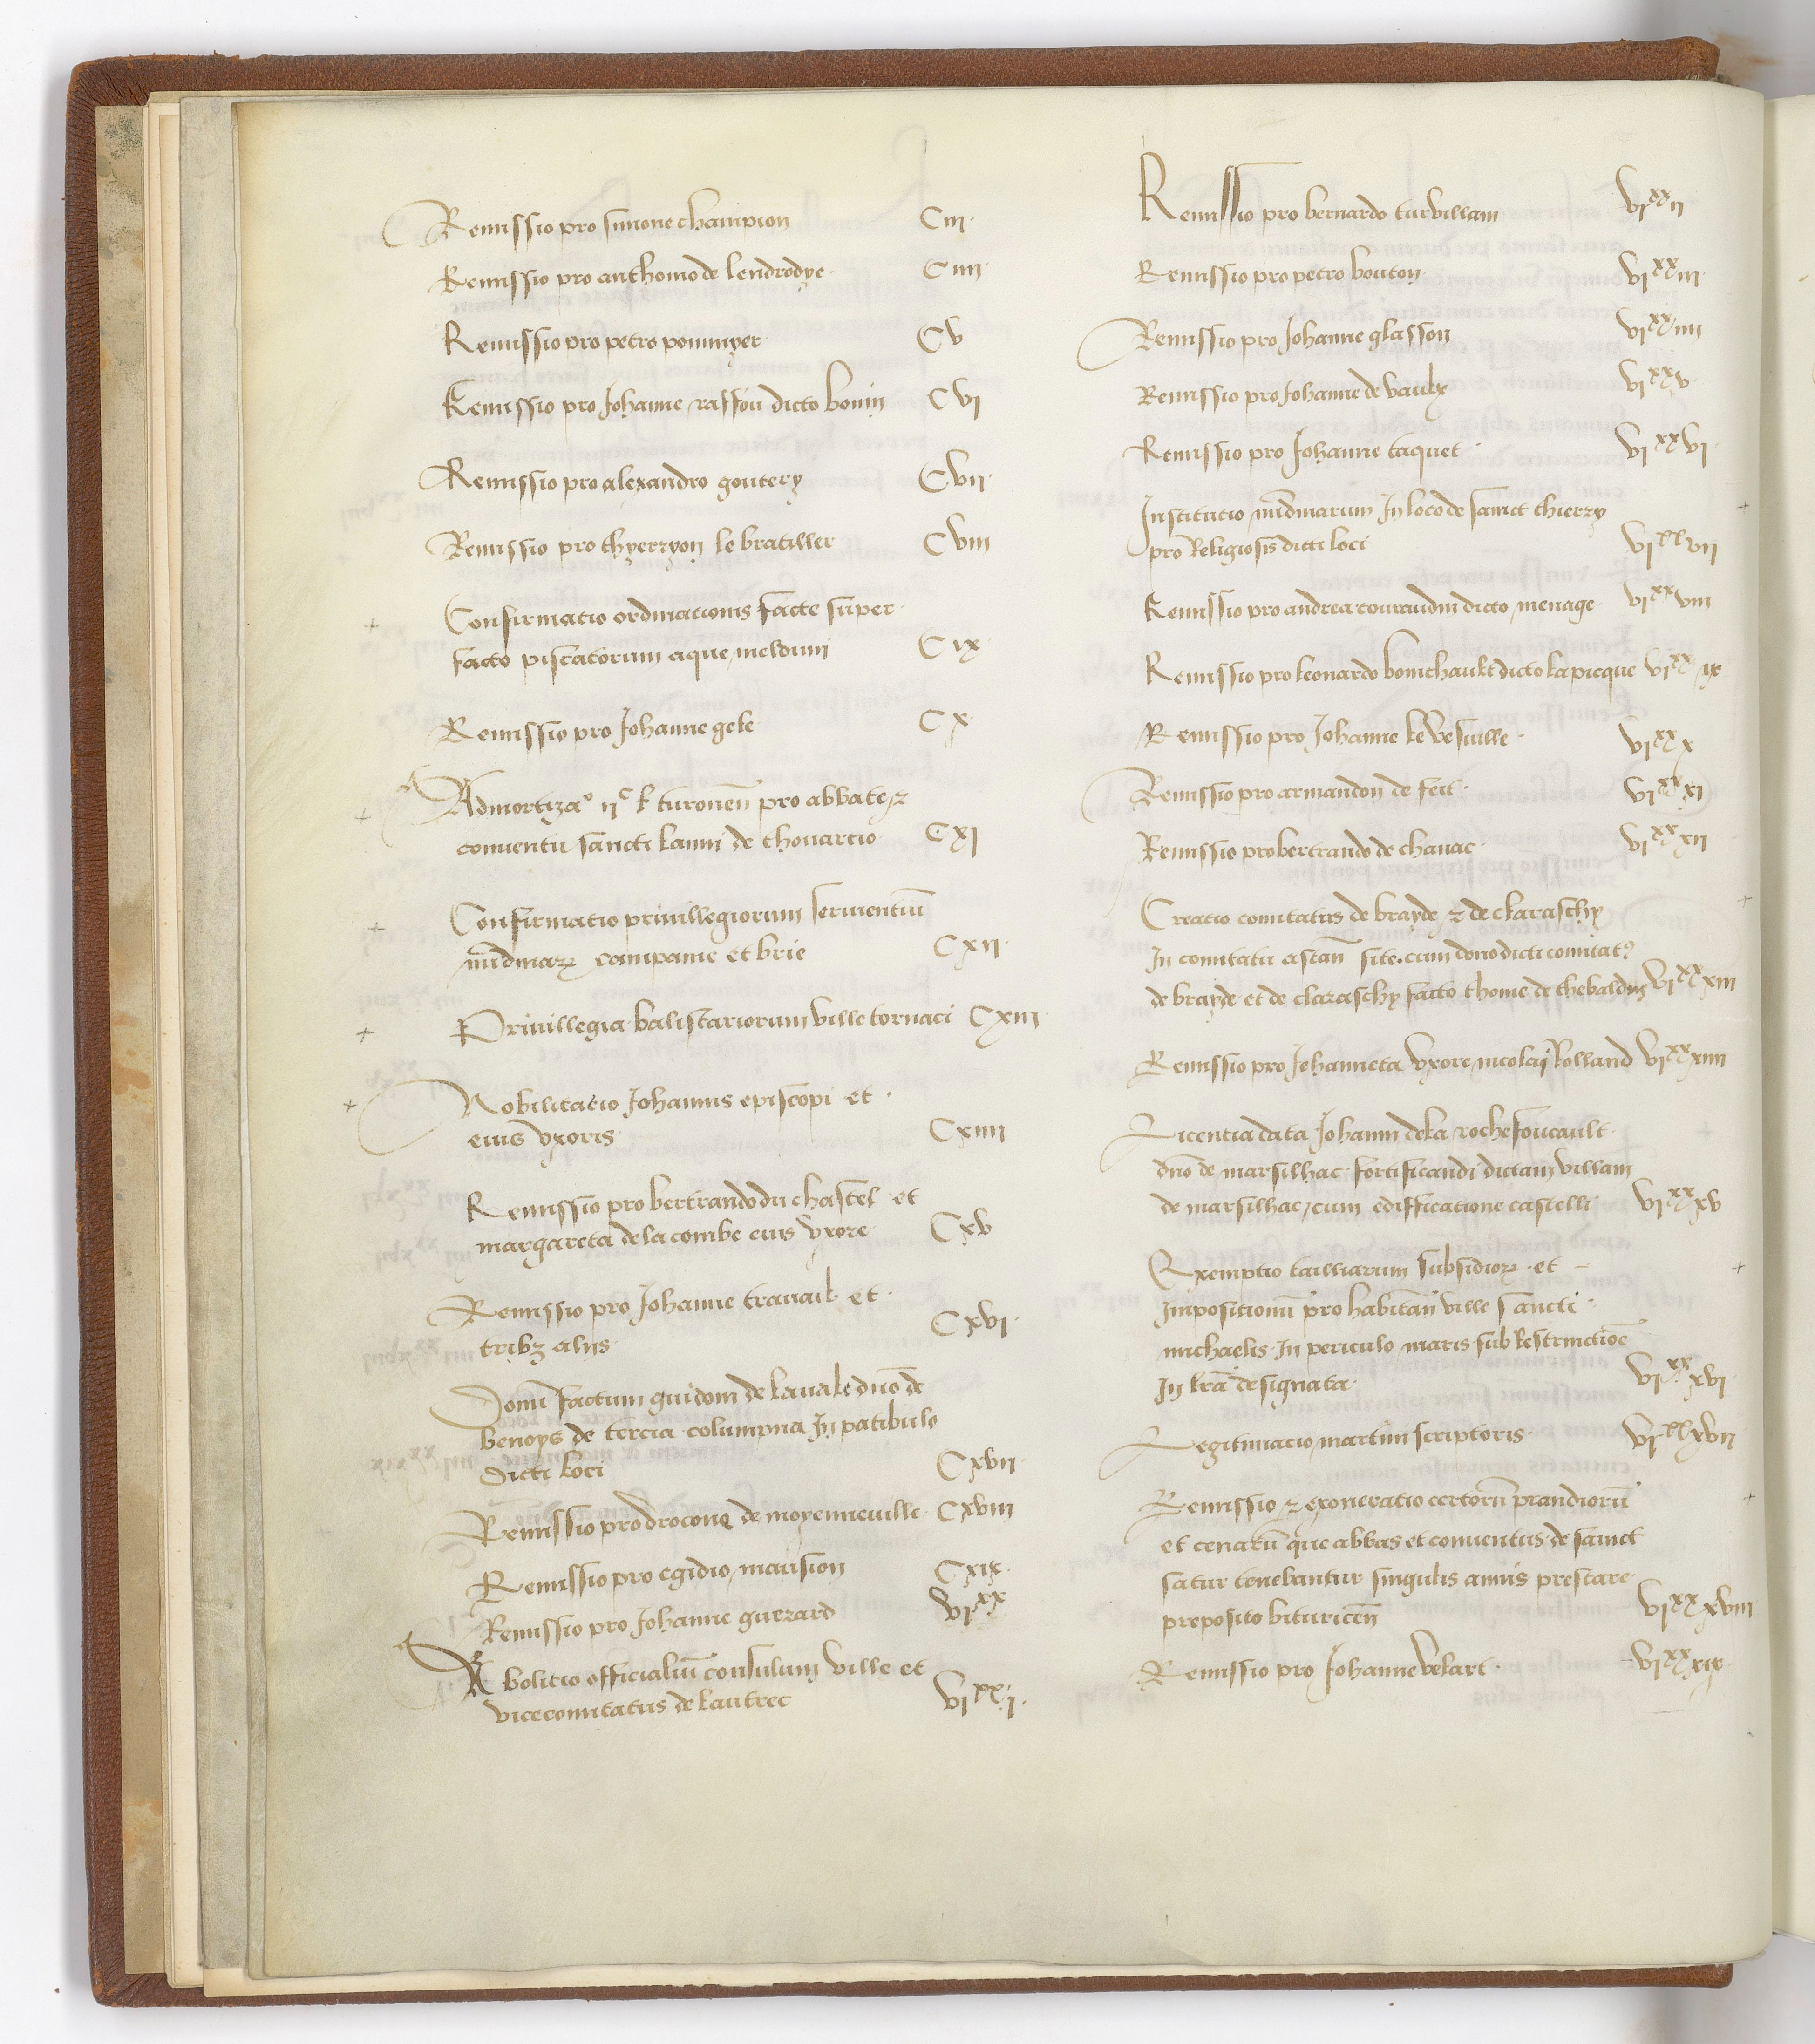 Remissio pro simone champion Ciii
Remissio pro anthonio de lendrodye Ciiii
Remissio pro petro pommyer Cv
Remissio pro Johanne raffou dicto bonin Cvi
Remissio pro alexandro goutery Cvii
Remissio pro thyerryon le bratiller Cviii
+ Confirmatio ordinacionis facte super
facto piscatorum aque meldum Cix
Remissio pro Johanne gele Cx
+ Admortizaº iiᶜ l turonen̄ pro abbate et
conuentu sancti launi de thouarcio Cxi
+ Confirmatio priuillegiorum seruientiū
nūdinaꝝ campanie et brie Cxii
+ Priuillegia balistariorum ville tornaci Cxiii
+ Nobilitatio Johannis episcopi et
eius vxoris Cxiiii
Remissio pro bertrando du chastel et
margareta de la combe eius vxore Cxv
Remissio pro Johanne trauail et
tribꝫ aliis Cxvi
Donū factum guidoni de lauale dn̄o de
benoys de tercia columpna In patibulo
dicti loci Cxvii
Remissio pro drocone de moyenneuille Cxviii
Remissio pro egidio mansion Cxix
Remissio pro Johanne guerard viˣˣ
Abolitio officialiū consulum ville et
vicecomitatus de lautrec viˣˣi
Remissio pro bernardo turvillam viˣˣii
Remissio pro petro bouton viˣˣiii
Remissio pro Johanne glasson viˣˣiiii
Remissio pro Johanne de vaulx viˣˣv
Remissio pro Johanne taquet viˣˣvi
Institutio nūdinarum In loco de sainct thierry +
pro Religiosis dicti loci viˣˣvii
Remissio pro andrea couraudin dicto menage viˣˣviii
Remissio pro leonardo bonichault dicto lapicque viˣˣix
Remissio pro Johanne le vesuille viˣˣx
Remissio pro armandon de feit viˣˣxi
Remissio pro bertrando de chanac viˣˣxii
Creatio comitatus de brayde et de claraschy +
In comitatu astan̄ site cum dono dicti comitatꝰ
de brayde et de claraschy facto thome de thebaldis viˣˣxiii
Remissio pro Johanneta vxore nicolai Rolland viˣˣxiiii
Licentia data Johanni de la rochefoucault
dn̄o de marsilhac fortificandi dictam villam
de marsilhac cum edifficatione castelli viˣˣxv
Exemptio tailliarum subsidioꝝ et +
Impositionū pro habitan̄ ville sancti
michaelis In periculo maris sub Restrinctiōe
In lr̄a designata viˣˣxvi
Legitimacio martini scriptoris viˣˣxvii
Remissio et exoneratio certorū prandiorū +
et cenarū que abbas et conuentus de sainct
satur tenebantur singulis annis prestare
preposito bituricen̄ viˣˣxviii
Remissio pro Johanne velart viˣˣxix